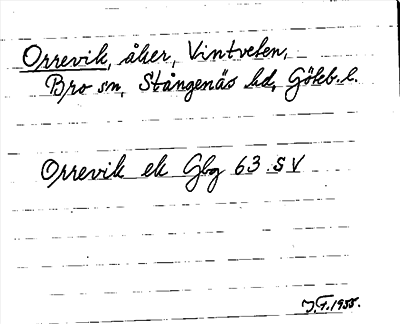 Orrevik, åker, Vintveten,
Bro sn, Stångenäs hd, Göteb. l.
Orrevik ek Gbg 63 SV
J.T. 1955.